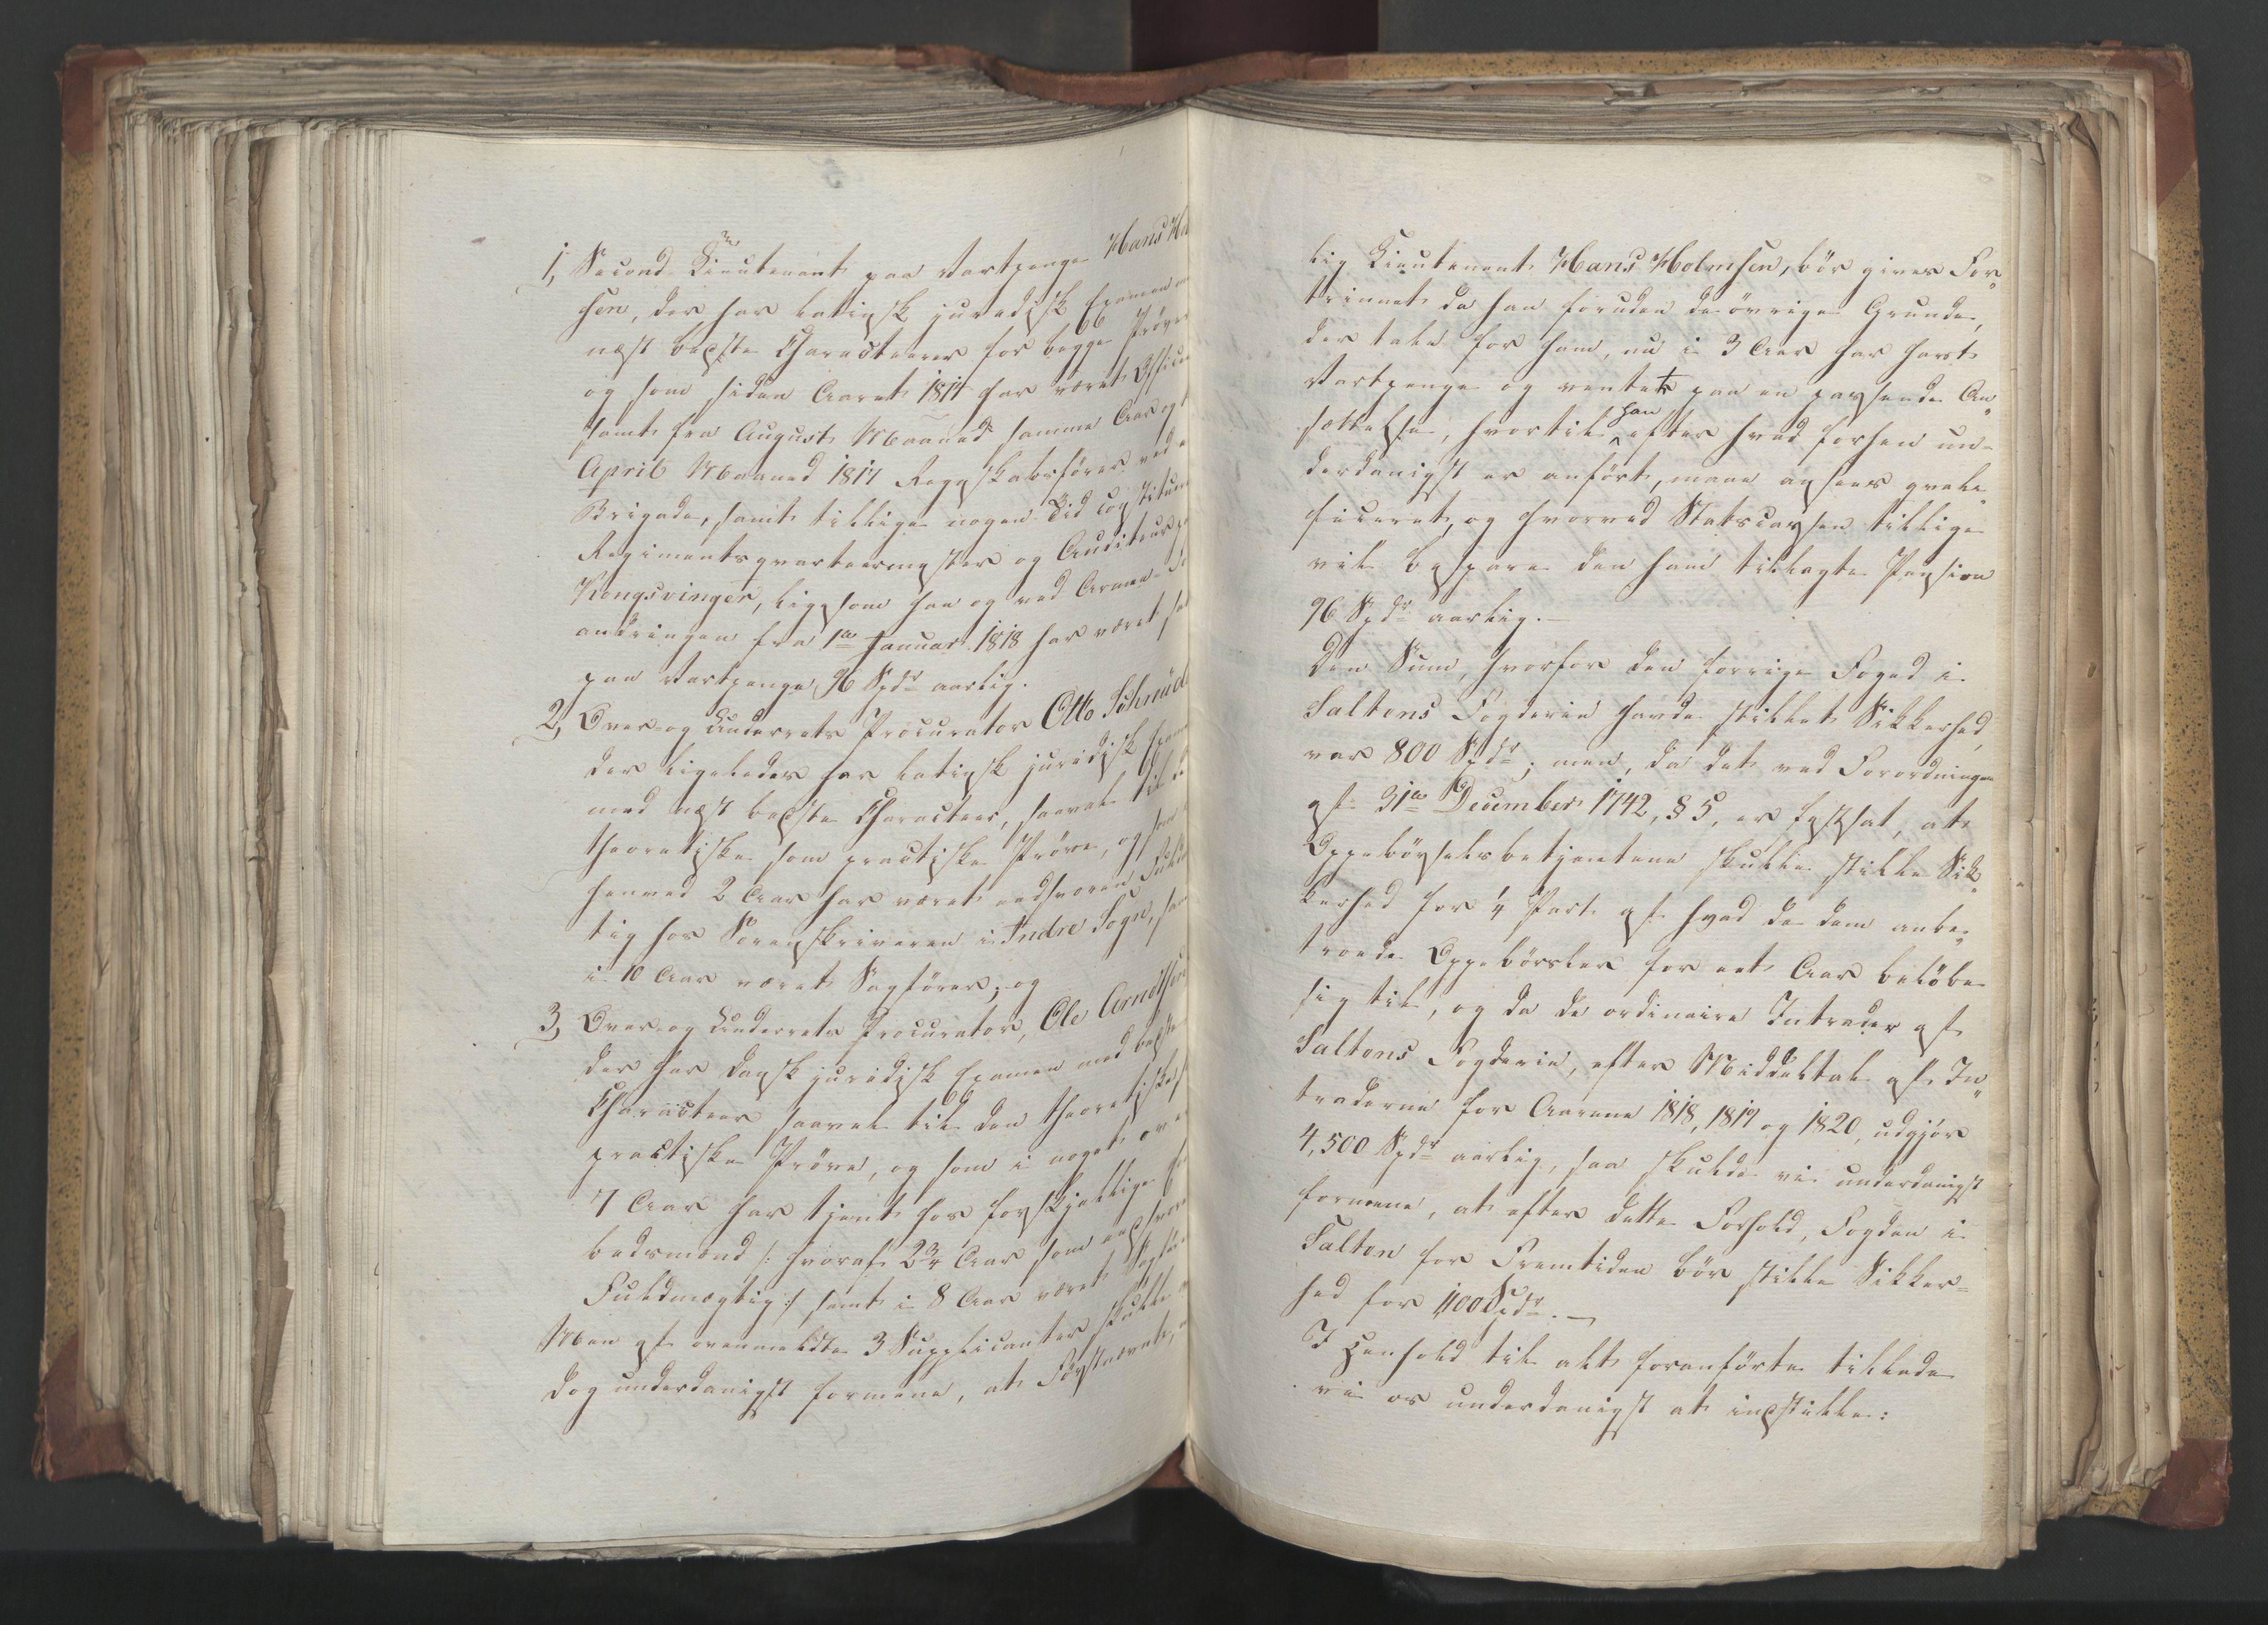 1, Second Lieutenant paa Vartpenge Hans Hol
sen, der har latinsk juridisk Examen m
næst bedste Characterer for begge Prøver
og som siden Aaret 1814 har været Officer
samt fra August Maaned samme Aar og t
April Maaned 1817 Regnskabsfører ved
Brigade, samt tillige nogen Tid constitue
Regimentsqvarteermester og Auditeur p
Kongsvinger, ligesom han og ved Armee-
andringen fra 1te Januar 1818 har været
paa Vartpenge 96 Spdr aarlig.
2, Over- og Underrets Procurator Otto Schneid
der ligeledes har latinsk juridisk Exam
med næst bedste Characteer, saavel til d
theoretiske som practiske Prøve, og som
henved 2 Aar har været eedsvoren Fuld
tig hos Sorenskriveren i Indre Sogn, sa
i 10 Aar været Sagfører; og
3, Over- og Underrets Procurator, Ole Arndtsen
der har dansk juridisk Examen med bedste
Characteer saavel til den theoretiske
practiske Prøve, og som i noget ov
7 Aar har tjent hos forskjellige
bedsmænd /: hvoraf 2 3/4 Aar som eedsvore
Fuldmægtig :/ samt i 8 Aar været Sagfør
Men af ovenmeldte 3 Supplicanter skulle
dog underdanigst formene, at Førstnævnte,
lig Lieutenant Hans Holmsen, bør gives For„
trinnet da han foruden de øvrige Grunde,
der tale for ham, nu i 3 Aar har havt
Vartpenge og ventet paa en passende An„
sættelse, hvortil han efter hvad forhen un-
derdanigst er anført, maae ansees qvali„
ficeret, og hvorved Statscassen tillige
vil besparе den ham tillagte Pension
96 Spdr aarlig. —
Den Sum, hvorfor den forrige Foged i
Saltens Fogderie havde stillet Sikkerhed,
var 800 Spdr; men, da det ved Forordningen
af 31te December 1742, § 5, er fastsat, at
Oppebørselsbetjentene skulle stille Sik„
kerhed for 1/4 Part af hvad de dem anbe„
troede Oppebørsler for eet Aar beløbe
sig til, og da de ordinaire Intrader af
Saltens Fogderie, efter Middeltal af In„
traderne for Aarene 1818, 1819 og 1820, udgjør
4,500 Spdr aarlig, saa skulde vi underdanigst
formene, at efter dette Forhold, Fogden i
Salten for Fremtiden bør stille Sikker-
hed for 1100 Spdr. —
I Henhold til alt foranførte tillade
vi os underdanigst at indstille: